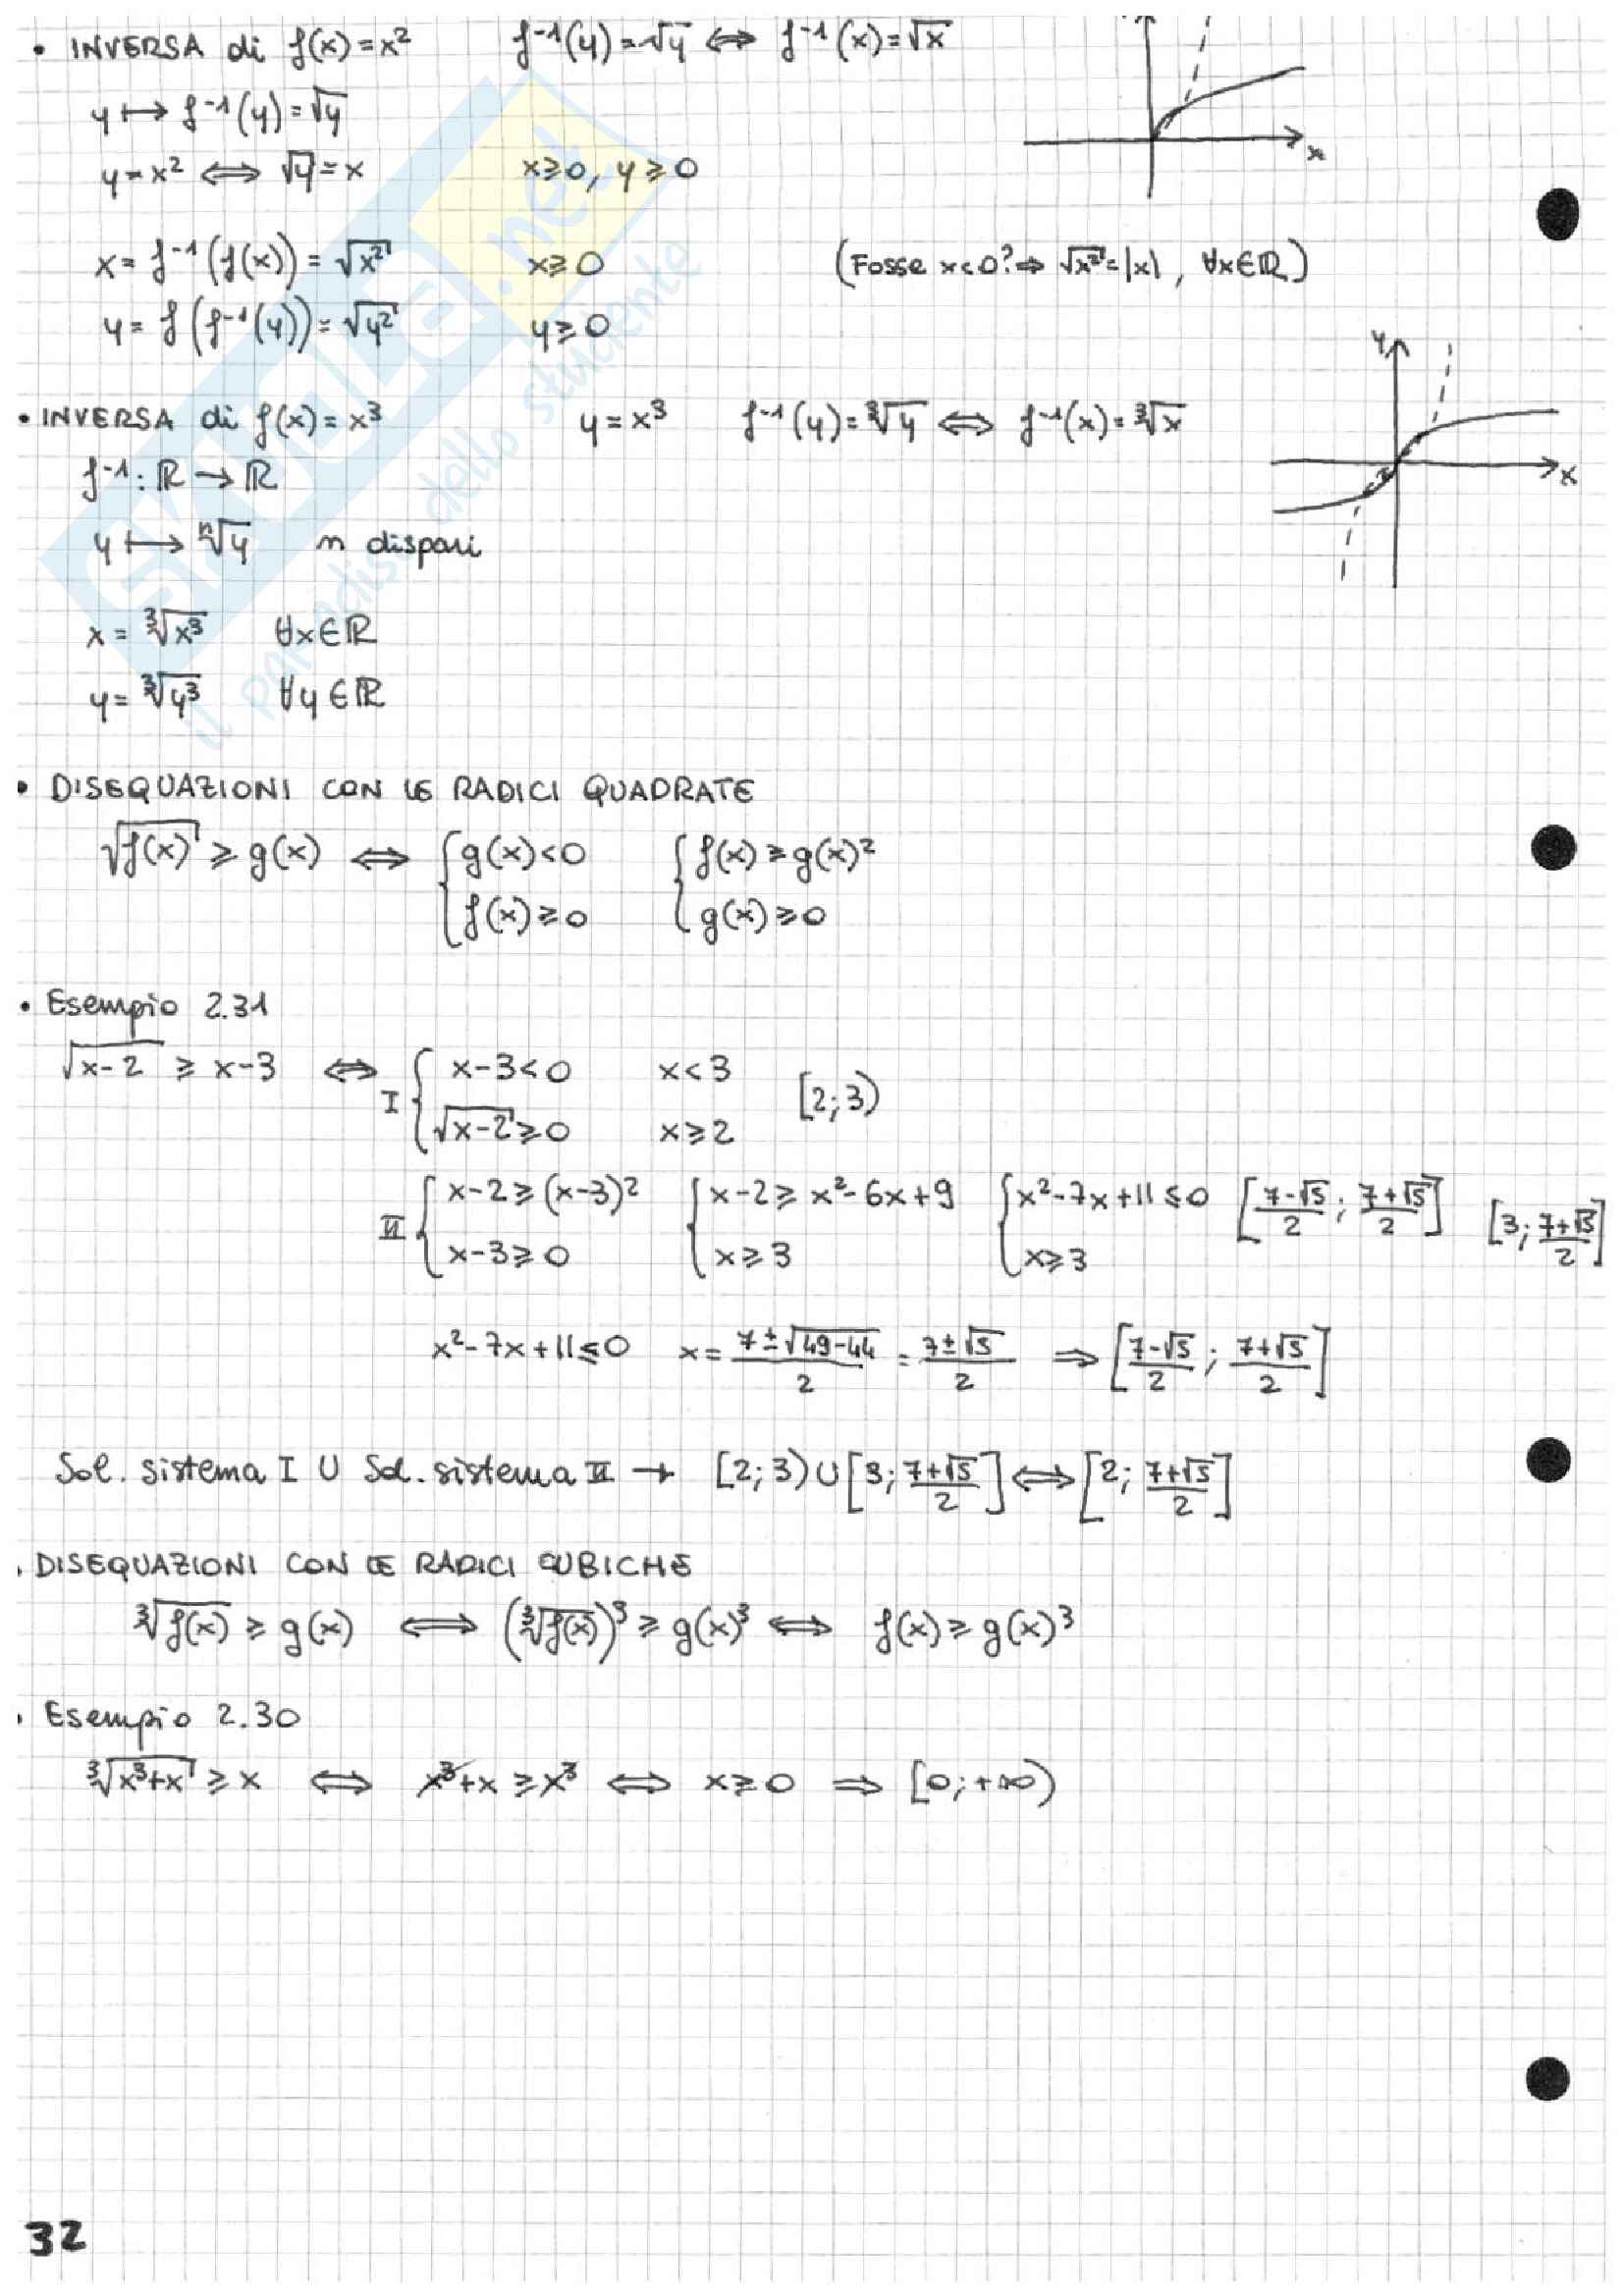 • INVERSA di f(x)=x² f⁻¹(y)=√y ⟺ f⁻¹(x)=√x
y ⟼ f⁻¹(y)=√y
x
y=x² ⟺ √y=x x≥0, y≥0
x=f⁻¹(f(x))=√x² x≥0 (Fosse x<0? ⇒ √x²=|x|, ∀x∈ℝ)
y=f(f⁻¹(y))=√y² y≥0
y
• INVERSA di f(x)=x³ y=x³ f⁻¹(y)=∛y ⟺ f⁻¹(x)=∛x
f⁻¹: ℝ → ℝ
x
y ⟼ ⁿ√y n dispari
x=∛x³ ∀x∈ℝ
y=∛y³ ∀y∈ℝ
SKUOLA.net
il paradiso dello studente
• DISEQUAZIONI CON LE RADICI QUADRATE
√f(x) ≥ g(x) ⟺ { g(x)<0 { f(x)≥g(x)²
f(x)≥0 g(x)≥0
• Esempio 2.31
√x-2 ≥ x-3 ⟺ I { x-3<0 x<3 [2;3)
√x-2≥0 x≥2
II { x-2≥(x-3)² { x-2≥x²-6x+9 { x²-7x+11≤0 [7-√5/2; 7+√5/2] [3; 7+√5/2]
x-3≥0 x≥3 x≥3
x²-7x+11≤0 x=7±√49-44/2 = 7±√5/2 ⇒ [7-√5/2; 7+√5/2]
Sol. sistema I ∪ Sol. sistema II → [2;3)∪[3; 7+√5/2] ⟺ [2; 7+√5/2]
. DISEQUAZIONI CON LE RADICI CUBICHE
∛f(x) ≥ g(x) ⟺ (∛f(x))³ ≥ g(x)³ ⟺ f(x)≥g(x)³
. Esempio 2.30
∛x³+x ≥ x ⟺ x³+x ≥ x³ ⟺ x≥0 ⇒ [0;+∞)
32